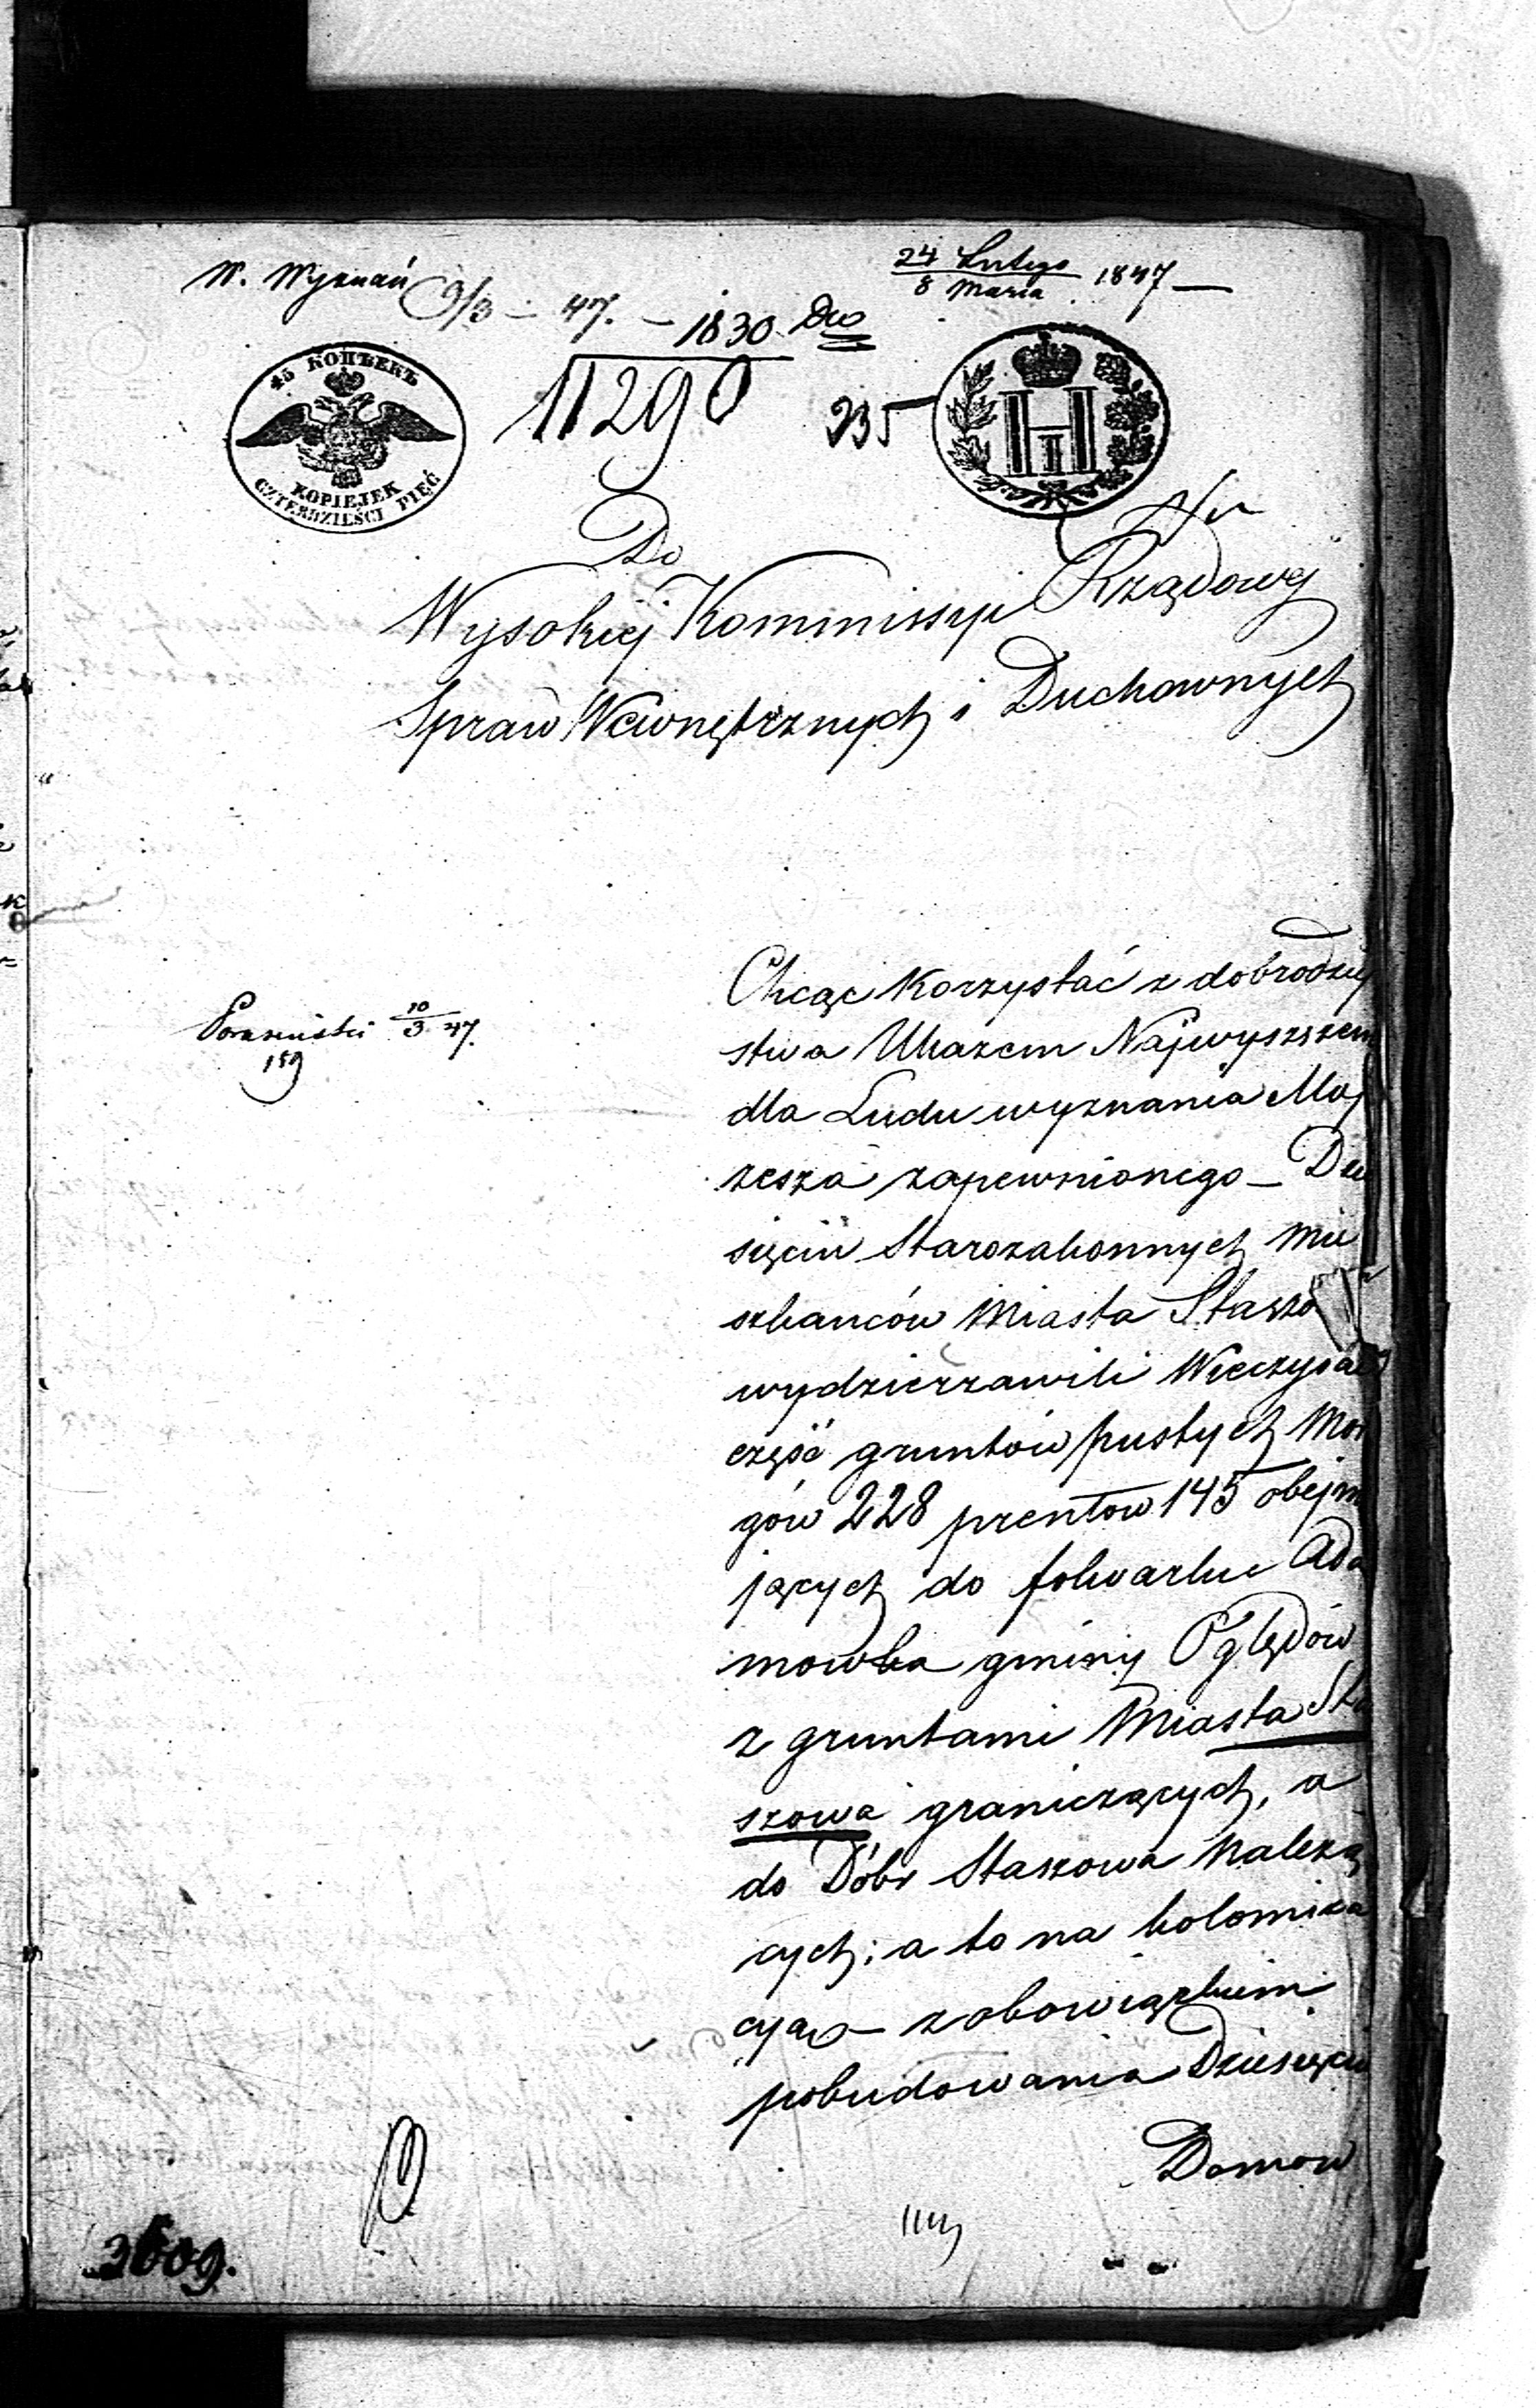 W. Wyznań
24 Lutego
8 Marca 1847
9/3 – 47. – 1830
11290
935
45 КОПѢЕКЪ
KOPIEJEK
CZTERDZIEŚCI PIĘĆ
Н I
Do
Wysokiej Kommissyi Rządowej
Spraw Wewnętrznych i Duchownych
10/3 47.
159
Chcąc Korzystać z dobrodziej
stwa Ukazem Najwyższem
dla Ludu wyznania Moj
zesza zapewnionego – Dzie
sięciu Starozakonnych Mie
szkanców Miasta Staszo
wydzierzawili Wieczyście
część gruntów pustych Mor
gów 228 prentow 145 obejmu
jących do folwarku Ada
mowka gminy Oględów
z gruntami Miasta Sta
szowa graniczących, a
do Dóbr Staszowa Nalezą
cych; a to na koloniza
cyą – z obowiązkiem
pobudowania Dziesięciu
Domow
3609.